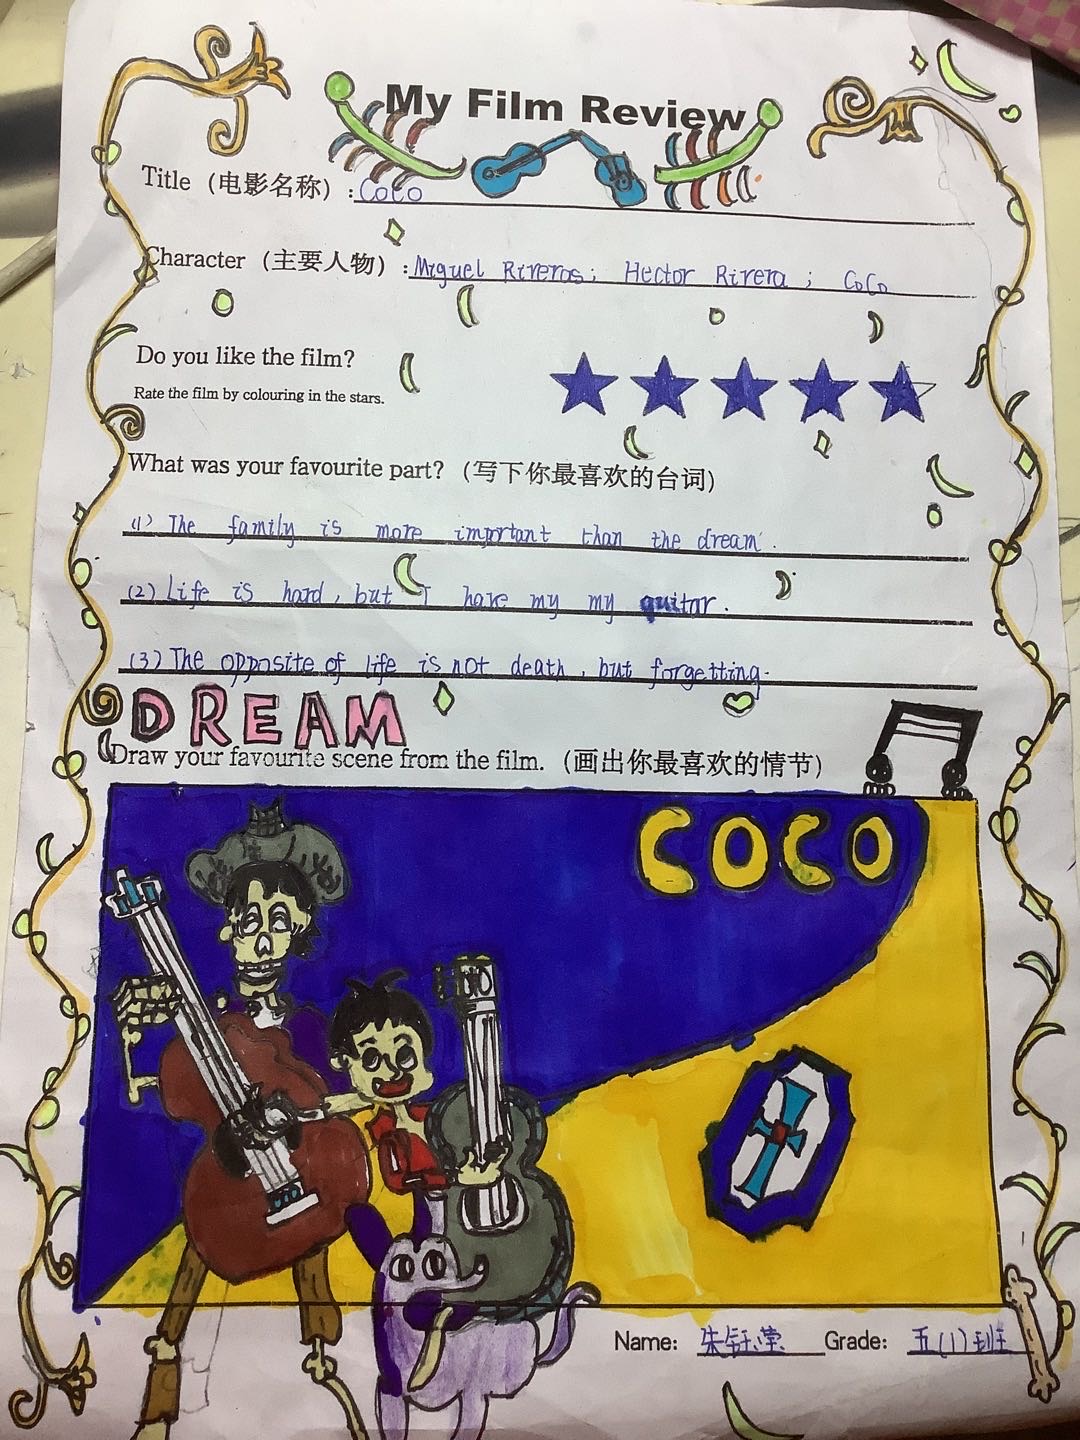 My Film Review
Title（电影名称）: CoCo
Character（主要人物）: Miguel Riveros; Hector Rivera; CoCo
Do you like the film?
Rate the film by colouring in the stars.
What was your favourite part?（写下你最喜欢的台词）
(1) The family is more important than the dream.
(2) Life is hard, but I have my my guitar.
(3) The opposite of life is not death, but forgetting.
DREAM
Draw your favourite scene from the film.（画出你最喜欢的情节）
COCO
Name: 朱钰滢 Grade: 五(1)班